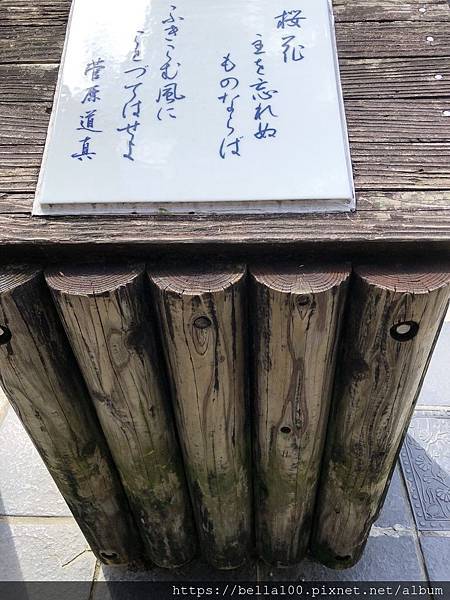 桜花
主を忘れぬ
ものならば
ふきこむ風に
ことづてはせよ
菅原道真
https://bella100.pixnet.net/album